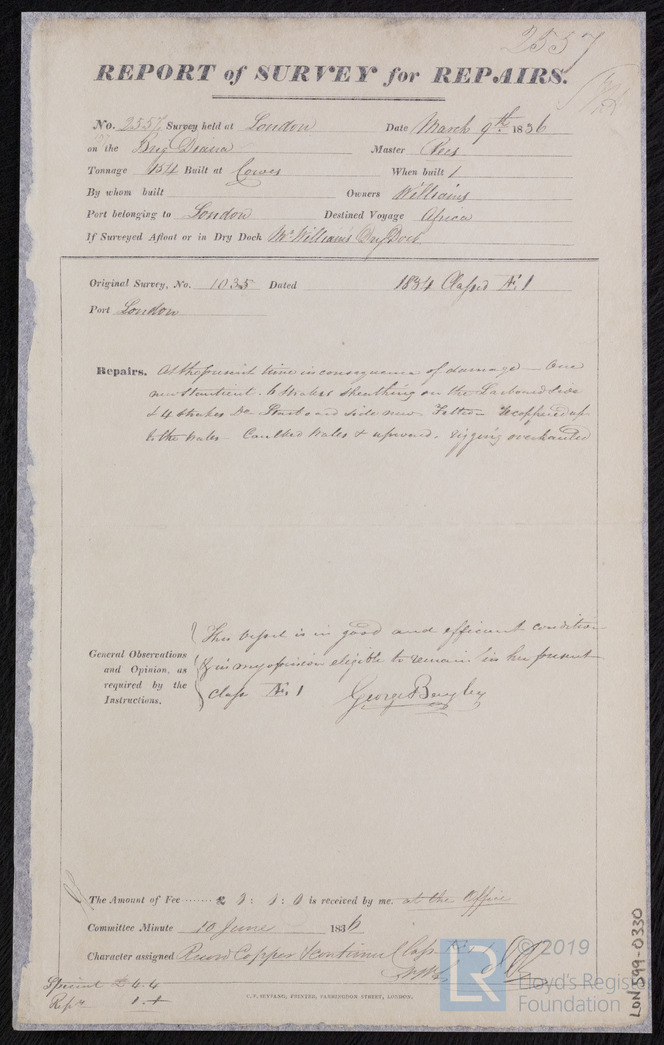 2557
REPORT of SURVEY for REPAIRS.
No. 2557 Survey held at London Date March 9th 1836
on the Brig Diana Master Rees
Tonnage 154 Built at Cowes When built
By whom built Owners Williams
Port belonging to London Destined Voyage Africa
If Surveyed Afloat or in Dry Dock Mr Williams Dry Dock
Original Survey, No. 1035 Dated 1834 Classed Æ 1
Port London
Repairs. At the present time in consequence of damage — One
new 6 Strakes Sheathing on the Larboard side
& 4 Strakes Do Starboard side new. Felt Recoppered up
to the Wales — Caulked Wales & upward. Rigging overhauled
General Observations and Opinion, as required by the Instructions.
This vessel is in good and efficient condition
& in my opinion eligible to remain in her present
class Æ 1 George Bayley
The Amount of Fee ...... £ : : 0 is received by me. at the Office
Committee Minute 10 June 1836
Character assigned Copper & continued Class
Special £ 4.4
C. F. SEYFANG, PRINTER, FARRINGDON STREET, LONDON.
© 2019
LR
Lloyd's Register
Foundation
LON 599-0330